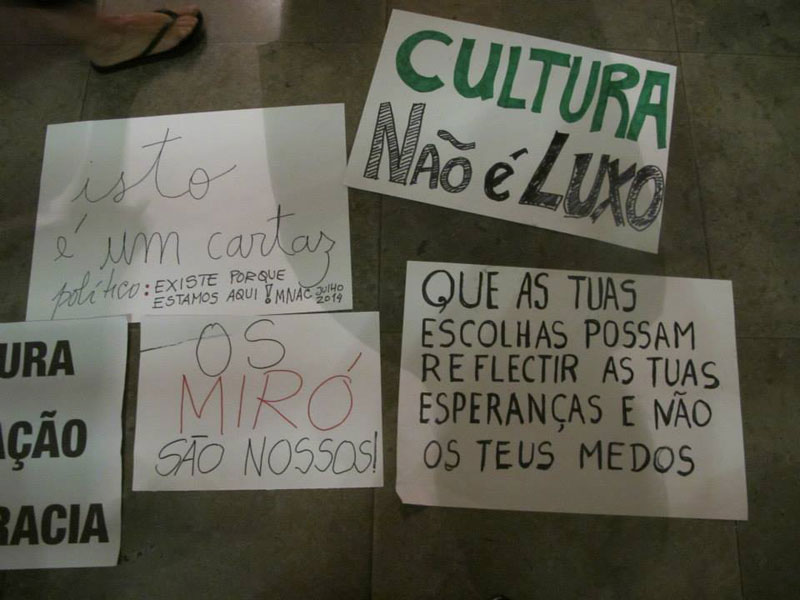 CULTURA
NÃO é LUXO
isto
é um cartaz
político: EXISTE PORQUE
ESTAMOS AQUI! MNAC JULHO
2014
QUE AS TUAS
ESCOLHAS POSSAM
REFLECTIR AS TUAS
ESPERANÇAS E NÃO
OS TEUS MEDOS
OS
MIRÓ
SÃO NOSSOS!
URA
AÇÃO
RACIA